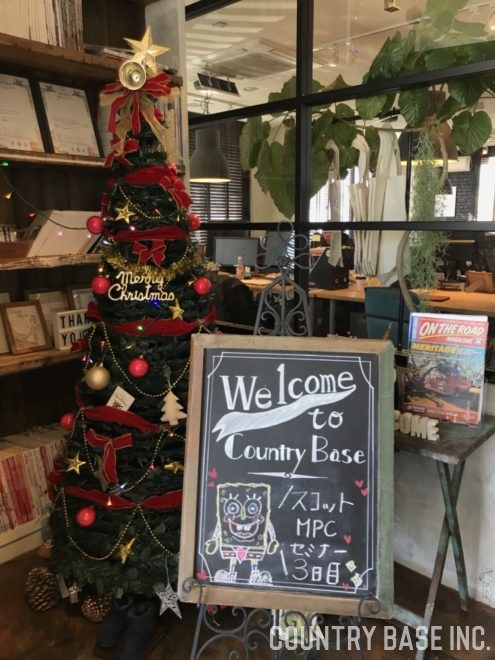 Merry
Christmas
THANK
YOU
Welcome
to
Country Base
ノスコット
MPC
セミナー
3日目
ON THE ROAD
MAGAZINE
HERITAGE
COME
COUNTRY BASE INC.